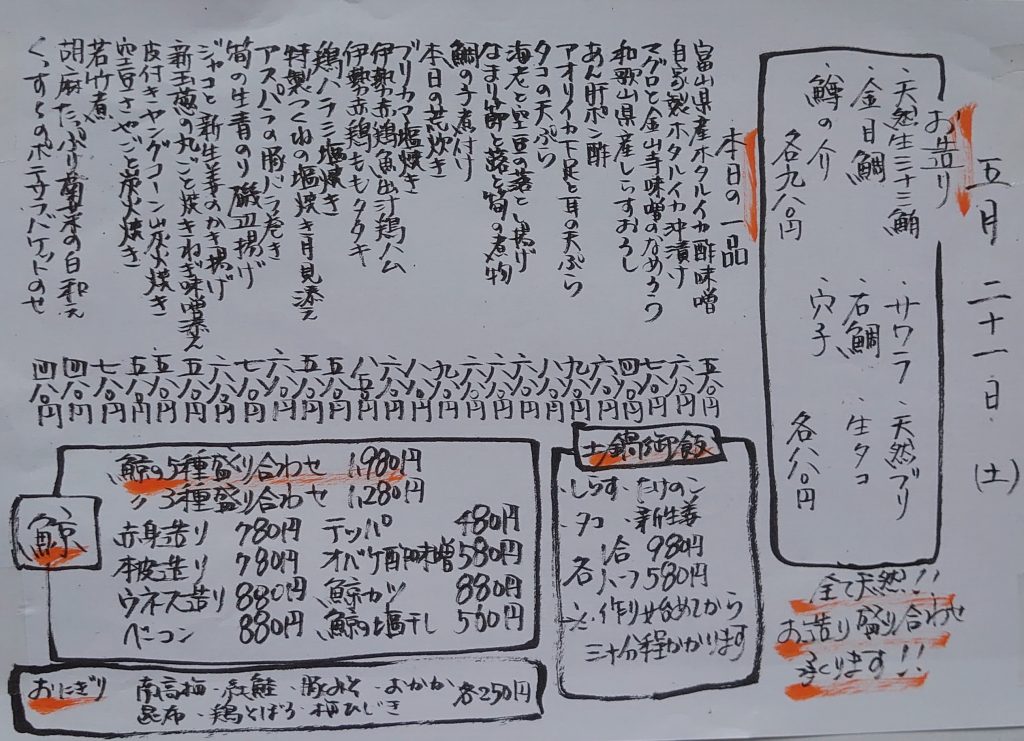 五月二十一日(土)
お造り
・天然生三十三鮪 ・サワラ ・天然ブリ
・金目鯛 ・石鯛 ・生タコ
・鱒の介 ・穴子
各九八〇円 各八八〇円
全て天然!!
お造り盛り合わせ
承ります!!
本日の一品
富山県産ホタルイカ酢味噌 五八〇円
自家製ホタルイカ沖漬け 六八〇円
マグロと金山寺味噌のなめろう 七八〇円
和歌山県産しらすおろし 四八〇円
あん肝ポン酢 六八〇円
アオリイカ下足と耳の天ぷら 九八〇円
タコの天ぷら 八八〇円
海老と空豆の落とし揚げ 六八〇円
なまり節と蕗と筍の煮物 六八〇円
鯛の子煮付け 六八〇円
本日の荒炊き 九八〇円
ブリカマ塩焼き 八八〇円
伊勢赤鶏魚出汁鶏ハム 五八〇円
伊勢赤鶏ももタタキ 八八〇円
鶏ハラミ塩焼き 五八〇円
特製つくねの塩焼き月見添え 五八〇円
アスパラの豚バラ巻き 六八〇円
筍の生青のり磯辺揚げ 七八〇円
ジャコと新生姜のかき揚げ 六八〇円
新玉葱の丸ごと焼きねぎ味噌添え 五八〇円
皮付きヤングコーン炭火焼き 五八〇円
空豆さやごと炭火焼き 五八〇円
若竹煮 七八〇円
胡麻たっぷり菊菜の白和え 四八〇円
くったらのポテサラバケットのせ 四八〇円
土鍋御飯
・しらす ・たけのこ
・タコ ・新生姜
各1合 980円
各ハーフ 580円
※作り始めてから
三十分程かかります
鯨
鯨の5種盛り合わせ 1,980円
〃3種盛り合わせ 1,280円
赤身造り 780円 テッパ 480円
本皮造り 780円 オバケ酢味噌 580円
ウネス造り 880円 鯨カツ 880円
ベーコン 880円 鯨の塩干し 500円
おにぎり 南高梅・炙鮭・豚みそ・おかか 各250円
昆布・鶏そぼろ・梅ひじき